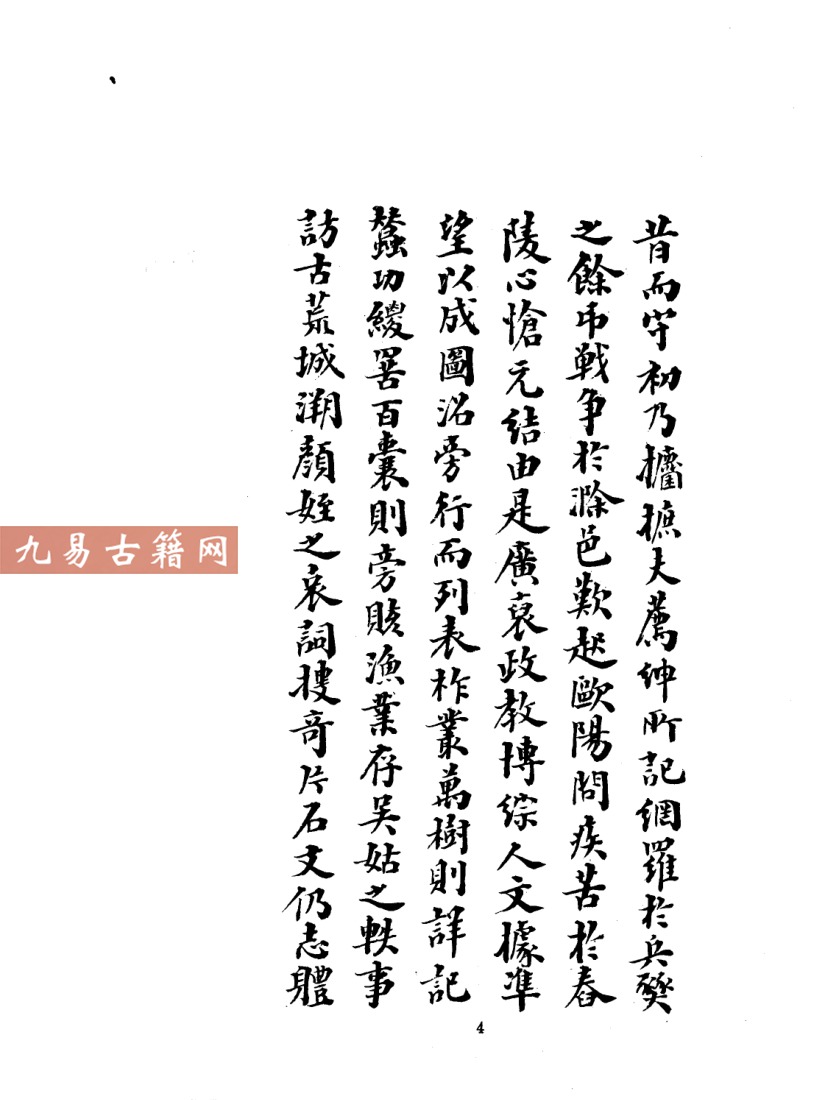 昔而守初乃攟摭夫薦紳所記網羅於兵燹
之餘弔戰爭於滁邑歎起歐陽問疾苦於舂
陵心愴元結由是廣裒政教博綜人文據準
望以成圖沿旁行而列表柞叢萬樹則詳記
蠶功纓罟百囊則旁賅漁業存吳姑之軼事
訪古荒城溯顏姪之哀詞搜奇片石文仍志體
九易古籍网
4